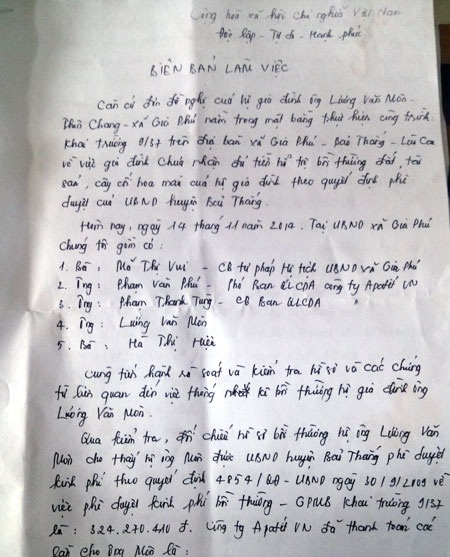 Cộng hoà xã hội chủ nghĩa Việt Nam
Độc lập - Tự do - Hạnh phúc
BIÊN BẢN LÀM VIỆC
Căn cứ đơn đề nghị của hộ gia đình ông Lường Văn Mòn -
Thôn Chang - xã Gia Phú nằm trong mặt bằng thực hiện công trình
Khai trường 9/37 trên địa bàn xã Gia Phú - Bảo Thắng - Lào Cai
về việc gia đình chưa nhận đủ tiền hỗ trợ bồi thường đất, tài
sản, cây cối hoa màu của hộ gia đình theo quyết định phê
duyệt của UBND huyện Bảo Thắng.
Hôm nay, ngày 14 tháng 11 năm 2014. Tại UBND xã Gia Phú
Chúng tôi gồm có:
1. Bà: Mỗ Thị Vui - CB tư pháp Hộ tịch UBND xã Gia Phú
2. Ông: Phạm Văn Phú - Phó Ban QLCDA công ty Apatít VN
3. Ông: Phạm Thanh Tùng - CB Ban QLCDA "
4. Ông: Lường Văn Mòn
5. Bà: Hà Thị Hiền
Cùng tiến hành rà soát và kiểm tra hồ sơ và các chứng
từ liên quan đến việc thống nhất bồi thường hộ gia đình ông
Lường Văn Mòn.
Qua kiểm tra, đối chiếu hồ sơ bồi thường hộ ông Lường Văn
Mòn cho thấy hộ ông Mòn được UBND huyện Bảo Thắng phê duyệt
kinh phí theo quyết định 4854/QĐ-UBND ngày 30/9/2009 về
việc phê duyệt kinh phí bồi thường - GPMB Khai trường 9/37
là: 324.270.410 đ. Công ty Apatít VN đã thanh toán các
lần cho ông Mòn là: